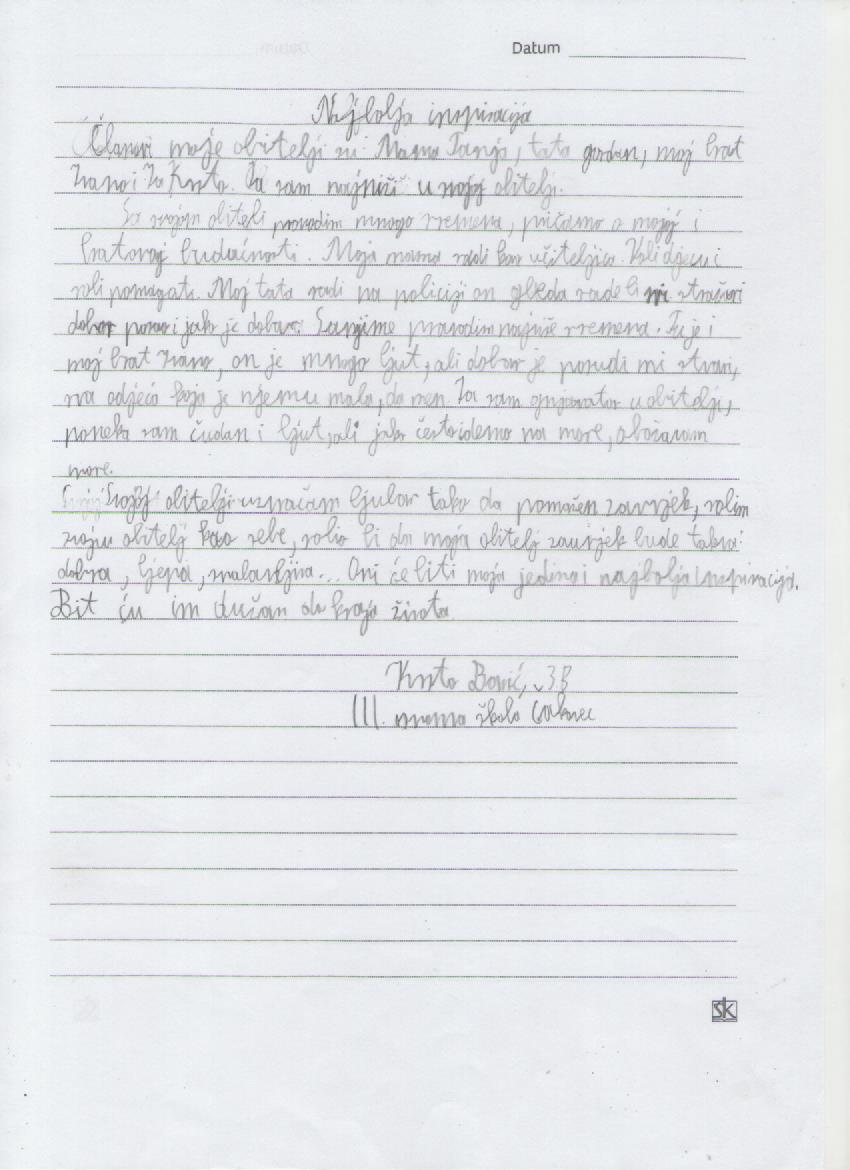 Datum
Najbolja inspiracija
Članovi moje obitelji su Mama Tanja, tata gordan, moj brat
Ivano i Ja Krsto. Ja sam najniži u svojoj obitelji.
Sa svojom obiteli provodim mnogo vremena, pričamo o mojoj i
bratovoj budućnosti. Moja mama radi kao učiteljica. Voli djecu i
voli pomagati. Moj tata radi na policiji on gleda rade li svi stražari
dobar posao i jako je dobar. Sanjime provodim najviše vremena. Tu je i
moj brat Ivano, on je mnogo ljut, ali dobar je posudi mi stvari,
na odjeća koja je njemu mala, da men. Ja sam gnjavator u obitelji,
poneka sam čudan i ljut, ali jako često idemo na more, obožavam
more.
Svojoj obitelji uzvraćam ljubav tako da pomažen zauvjek, volim
svoju obitelj kao sebe, volio bi da moja obitelj zauvjek bude takva:
dobra, ljepa, nalavljiva... Oni će biti moja jedina i najbolja inspiracija.
Bit ću im dužan do kraja života.
Krsto Bović, 3.B
III. osnovna škola Čakovec
sk